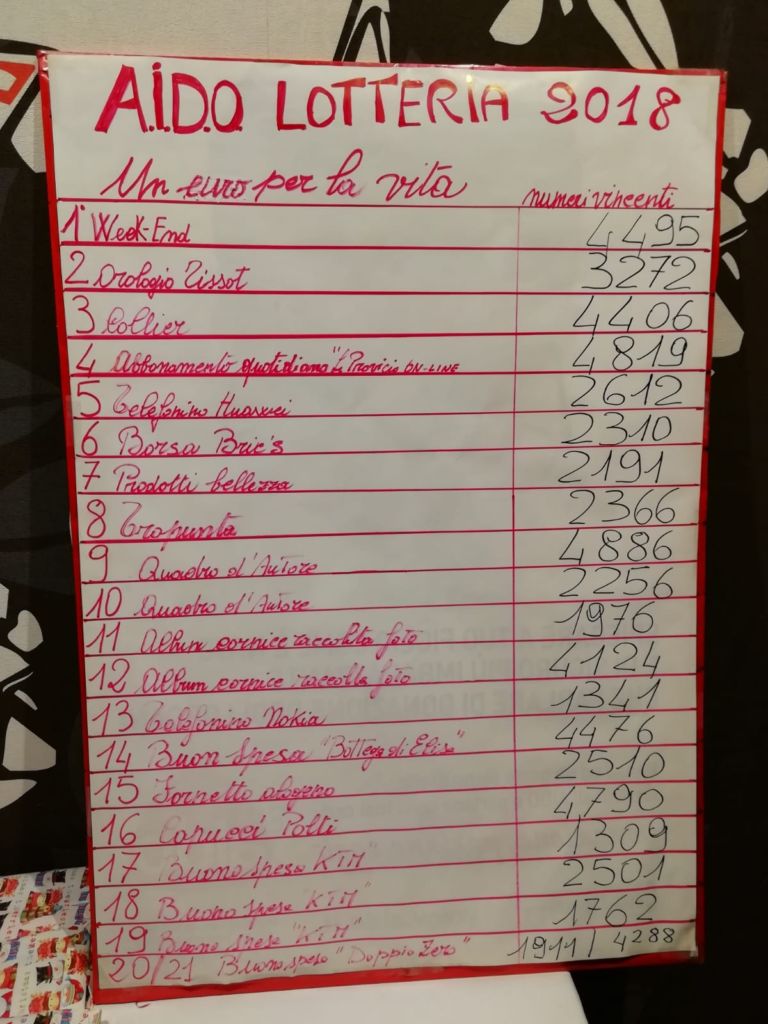 A.I.D.O. LOTTERIA 2018
Un euro per la vita numeri vincenti
1° Week-End 4495
2 Orologio Tissot 3272
3 Collier 4406
4 Abbonamento quotidiano "La Provicia ON-LINE 4819
5 Telefonino Huawei 2612
6 Borsa Bric's 2310
7 Prodotti bellezza 2191
8 Trapunta 2366
9 Quadro d'Autore 4886
10 Quadro d'Autore 2256
11 Album cornice raccolta foto 1976
12 Album cornice raccolta foto 4124
13 Telefonino Nokia 1341
14 Buon spesa "Bottega di Elisa" 4476
15 Fornetto alogeno 2510
16 Capucci Polti 4790
17 Buono spesa KTM" 1309
18 Buono spesa "KTM" 2501
19 Buono spesa "KTM" 1762
20/21 Buono speso "Doppio Zero" 1911 / 4288